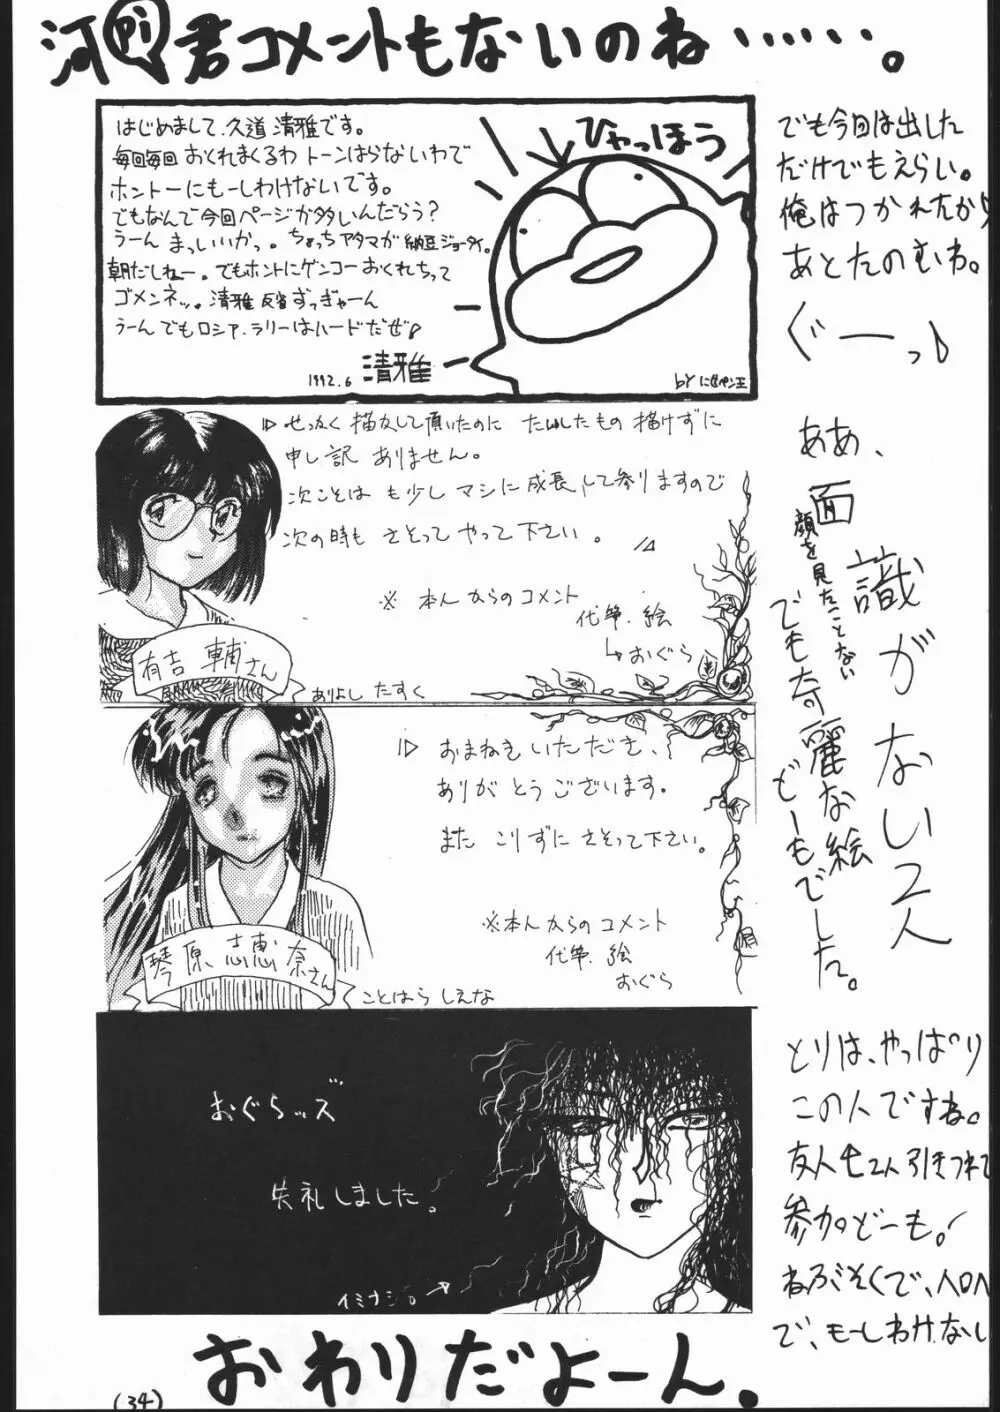 河Pi君コメントもないのね……。
はじめまして、久道 清雅です。
毎回毎回 おくれまくるわ トーンはらないわで
ホントーにもーしわけないです。
でもなんで今回ページが多いんだらう?
うーん まっいいかっ。ちょっちアタマが納豆ジョータイ。
朝だしねー。でもホントにゲンコーおくれちって
ゴメンネッ。清雅 反省 ずっぎゃーん
うーん でもロシア.ラリーはハードだぜ♪
1992.6 清雅
ひゃっほう
by
でも今回は出した
だけでもえらい。
俺はつかれたから
あとたのむね。
ぐーっ♪
▷せっかく 描かして頂いたのに たいしたもの 描けずに
申し訳 ありません。
次こそは も少し マシに成長して参りますので
次の時も さそって やって下さい。
※ 本人からのコメント
代筆.絵
↳おぐら
有吉 輔さん
ありよし たすく
▷おまねき いただき、
ありが とうございます。
また こりずに さそって下さい。
※本人からのコメント
代筆.絵
おぐら
琴原 志恵奈さん
ことはら しえな
ああ、
面識がない2人
顔を見たことない
でも奇麗な絵
どーもでした。
おぐらッズ
失礼しました。
イミナシ。→
とりは、やっぱり
この人ですね。
友人も2人引きつれて
参加どーも。
ねぶそくで、
で、もーしわけなし
おわりだよーん。
(34)